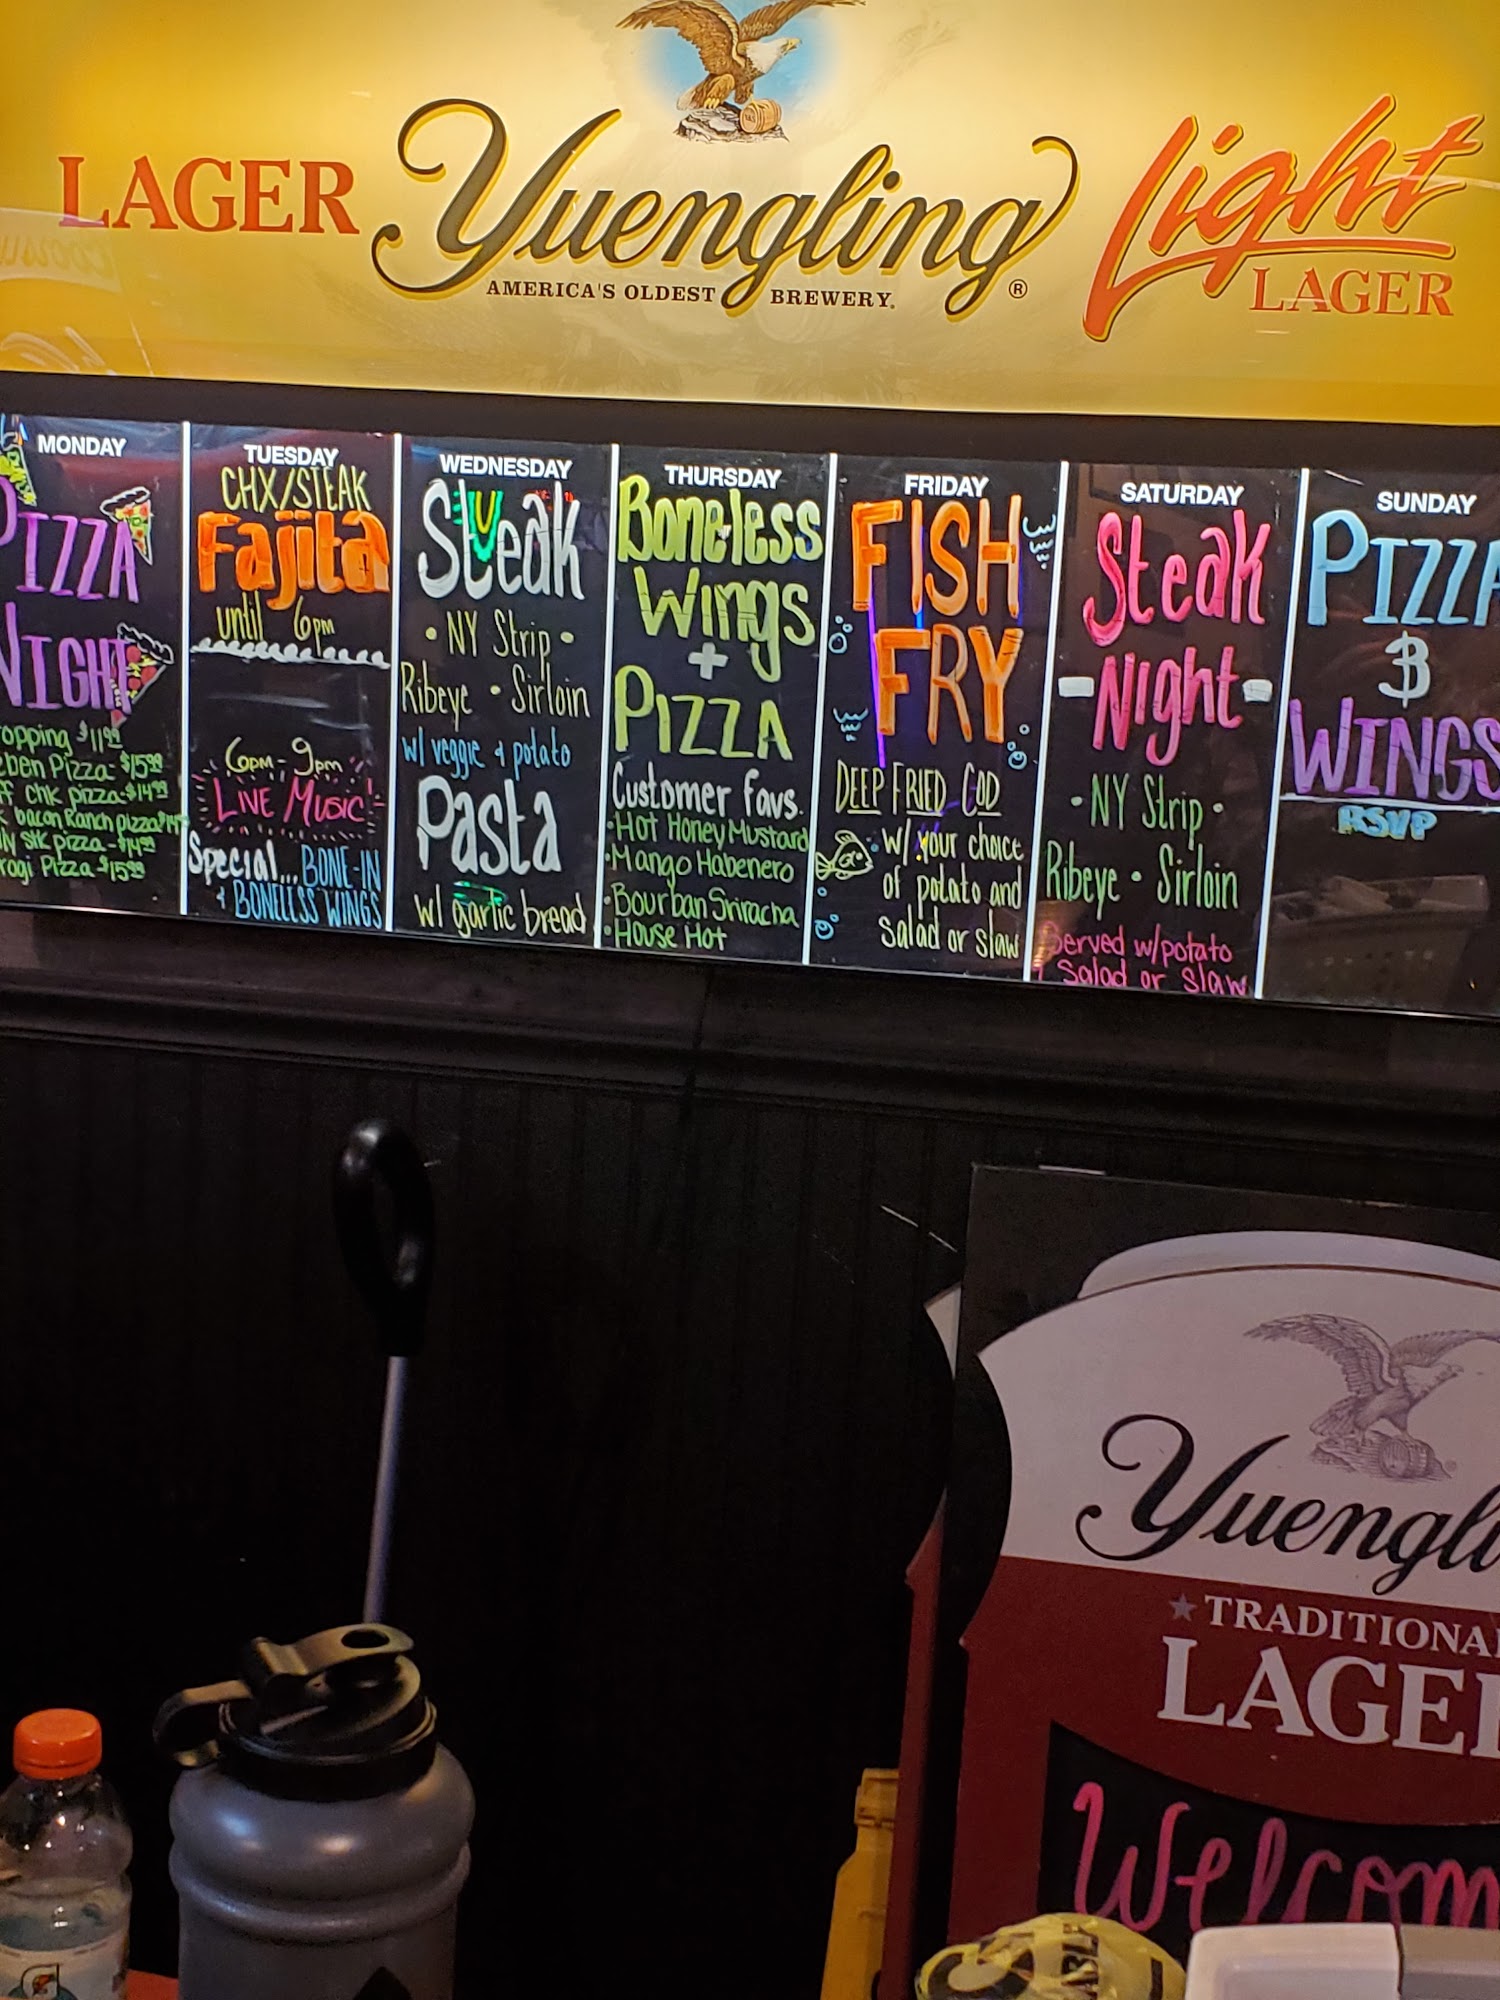 LAGER
Yuengling
®
AMERICA'S OLDEST BREWERY.
Light
LAGER
MONDAY
PIZZA
NIGHT
opping $11.99
eben Pizza- $15.99
ff chk pizza-$14.99
bacon Ranch pizza
stk pizza-$14.99
rogi Pizza-$15.99
TUESDAY
CHX/STEAK
Fajita
until 6pm
6pm-9pm
LIVE MUSIC!
Special... BONE-IN
& BONELESS WINGS
WEDNESDAY
Steak
• NY Strip •
Ribeye • Sirloin
w/ veggie & potato
Pasta
w/ garlic bread
THURSDAY
Boneless
Wings
+
PIZZA
Customer favs.
•HOT HONEY MUSTARD
•Mango Habenero
•Bourban Sriracha
•House Hot
FRIDAY
FISH
FRY
DEEP FRIED COD
w/ your choice
of potato and
salad or slaw
SATURDAY
Steak
-Night-
• NY Strip •
Ribeye • Sirloin
Served w/potato
& Salad or slaw
SUNDAY
PIZZA
&
WINGS
RSVP
Yuengli
TRADITIONAL
LAGE
Welcom